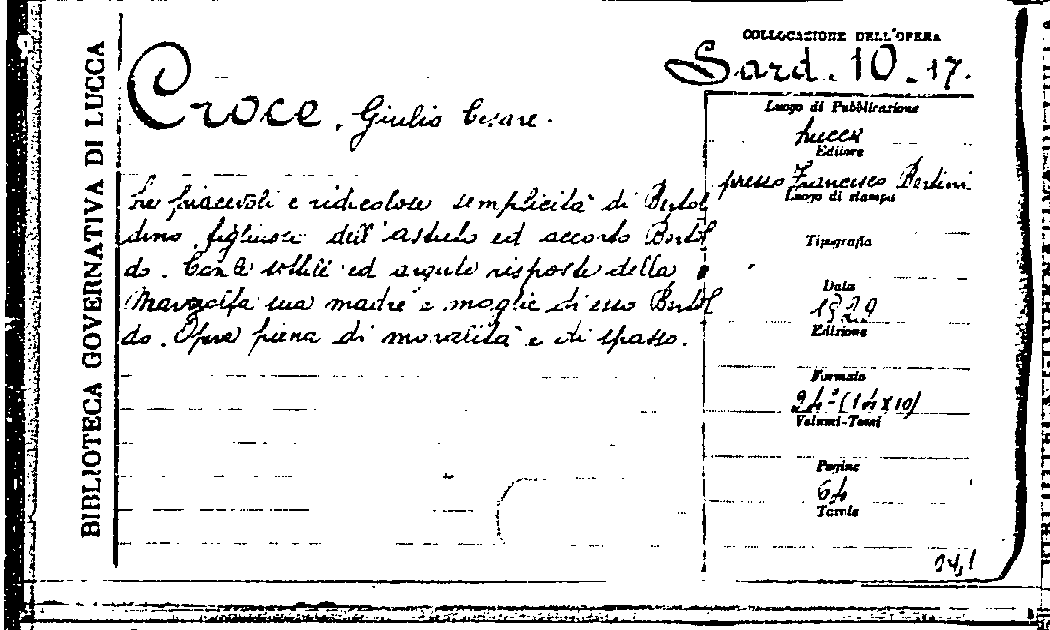 BIBLIOTECA GOVERNATIVA DI LUCCA
COLLOCAZIONE DELL'OPERA
Sard. 10-17.
Croce, Giulio Cesare.
Le piacevoli e ridicolose semplicità di Bertol
dino, figliuolo dell'astuto ed accorto Bertol
do. Con le sottili ed argute risposte della
Marcolfa sua madre e moglie di esso Bertol
do. Opera piena di moralità e di spasso.
Luogo di Pubblicazione
Lucca
Editore
presso Francesco Bertini
Luogo di stampa
Tipografia
Data
Edizione
Formato
24° (14x10)
Volumi-Tomi
Pagine
64
Tavole